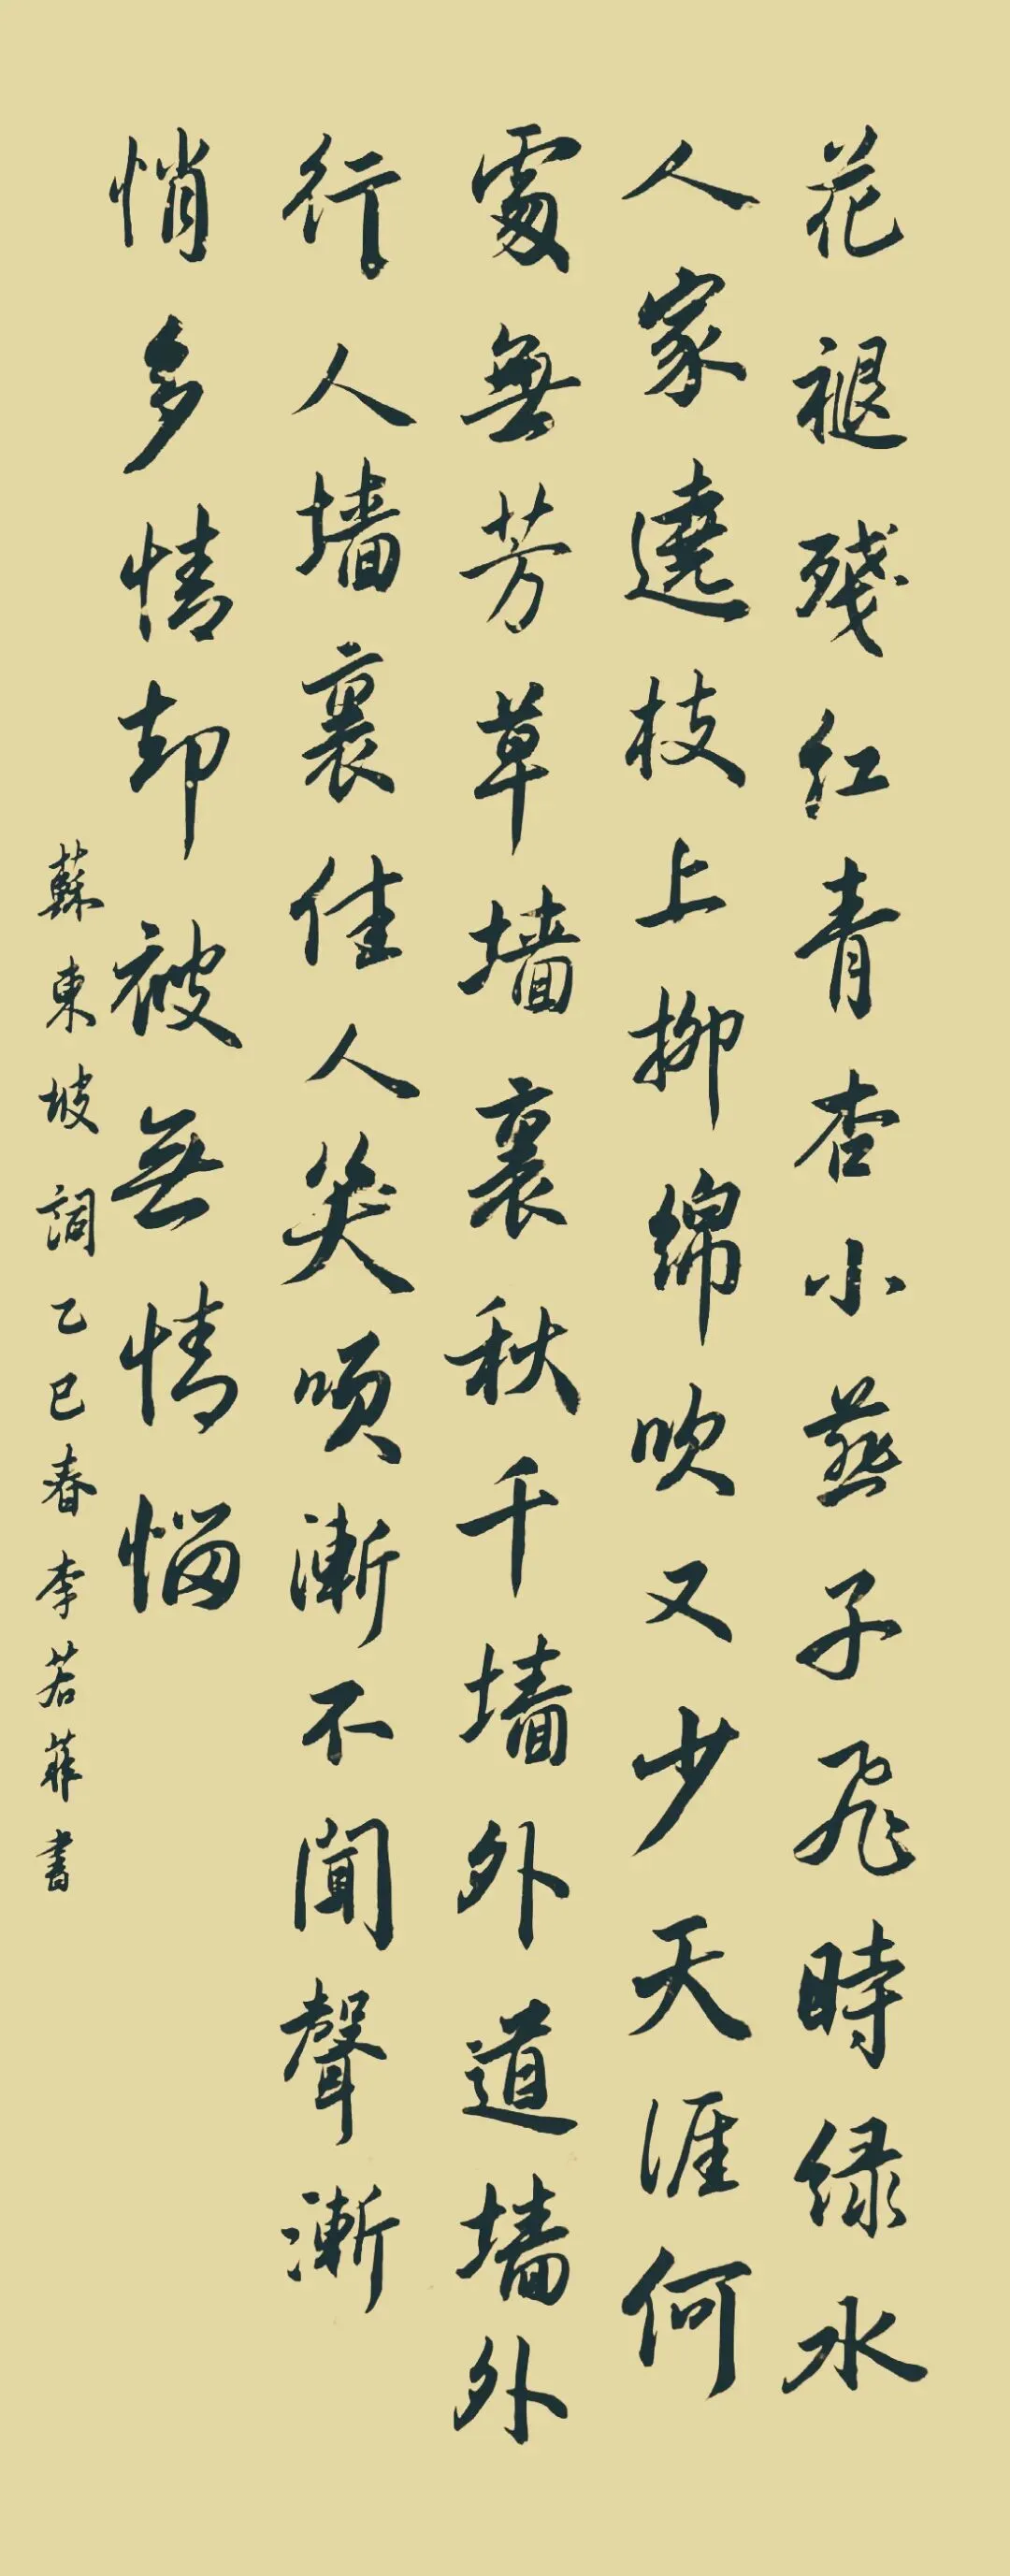 花褪殘红青杏小燕子飛時绿水
人家遶枝上柳绵吹又少天涯何
處無芳草墙裏秋千墙外道墙外
行人墙裏佳人笑唄漸不闻聲漸
悄多情却被無情惱
蘇東坡詞乙巳春李若菲書